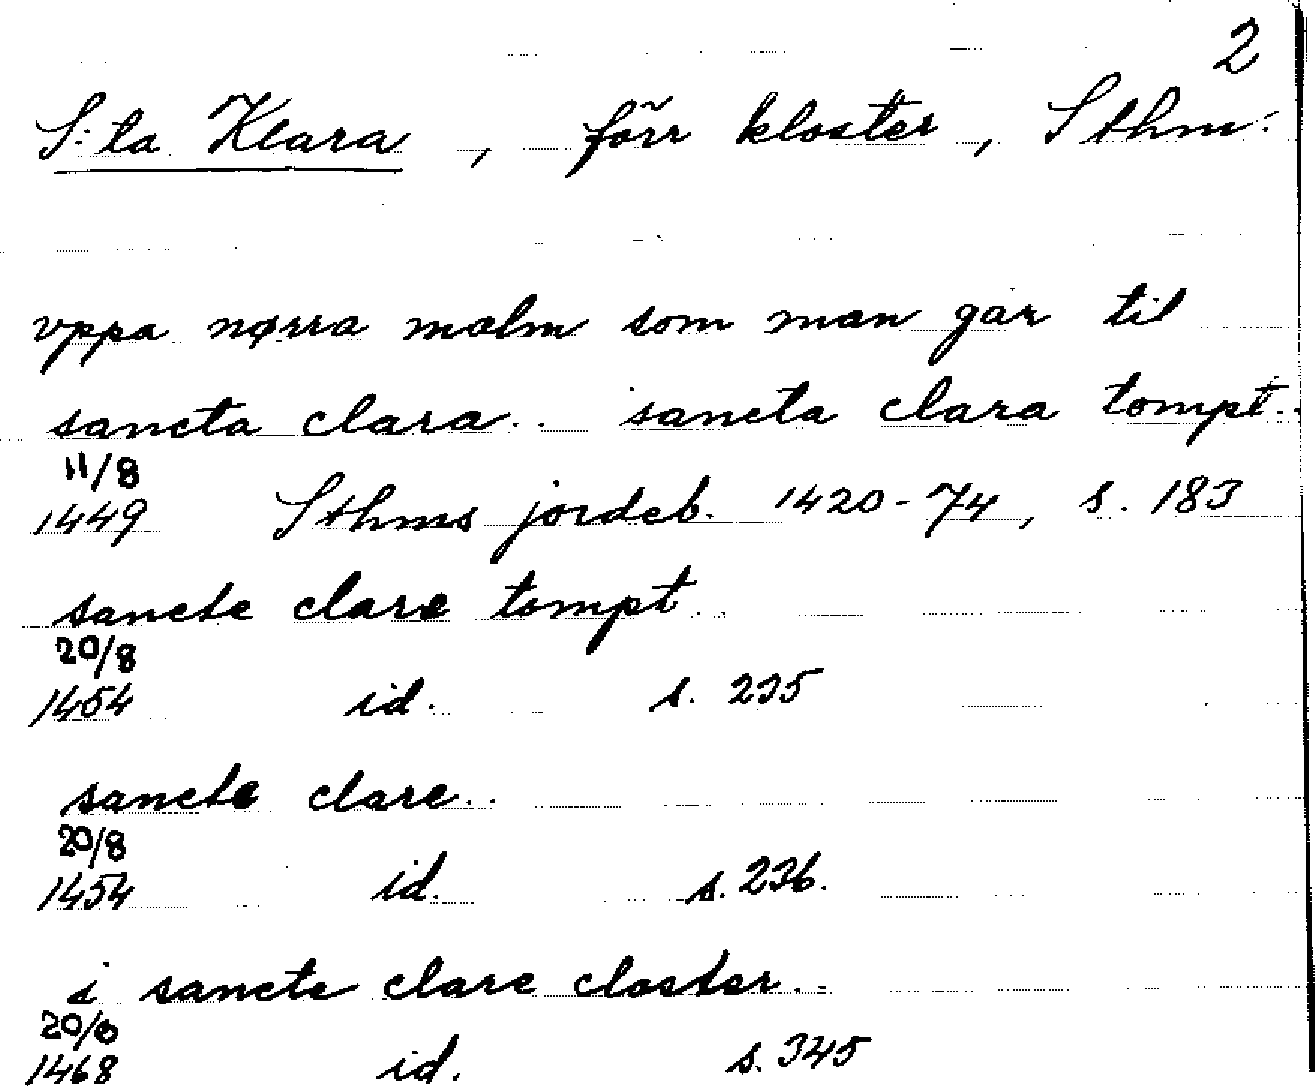 2
S:ta Klara, förr kloster, Sthm.
vppa nørra malm som man gar til
sancta clara.. sancta clara tompt..
11/8
1449 Sthms jordeb. 1420-74, s. 183
sancte clare tompt..
20/8
1454 id. s. 235
sancte clare..
20/8
1454 id. s. 236.
i sancte clare closter..
20/8
1468 id. s. 345